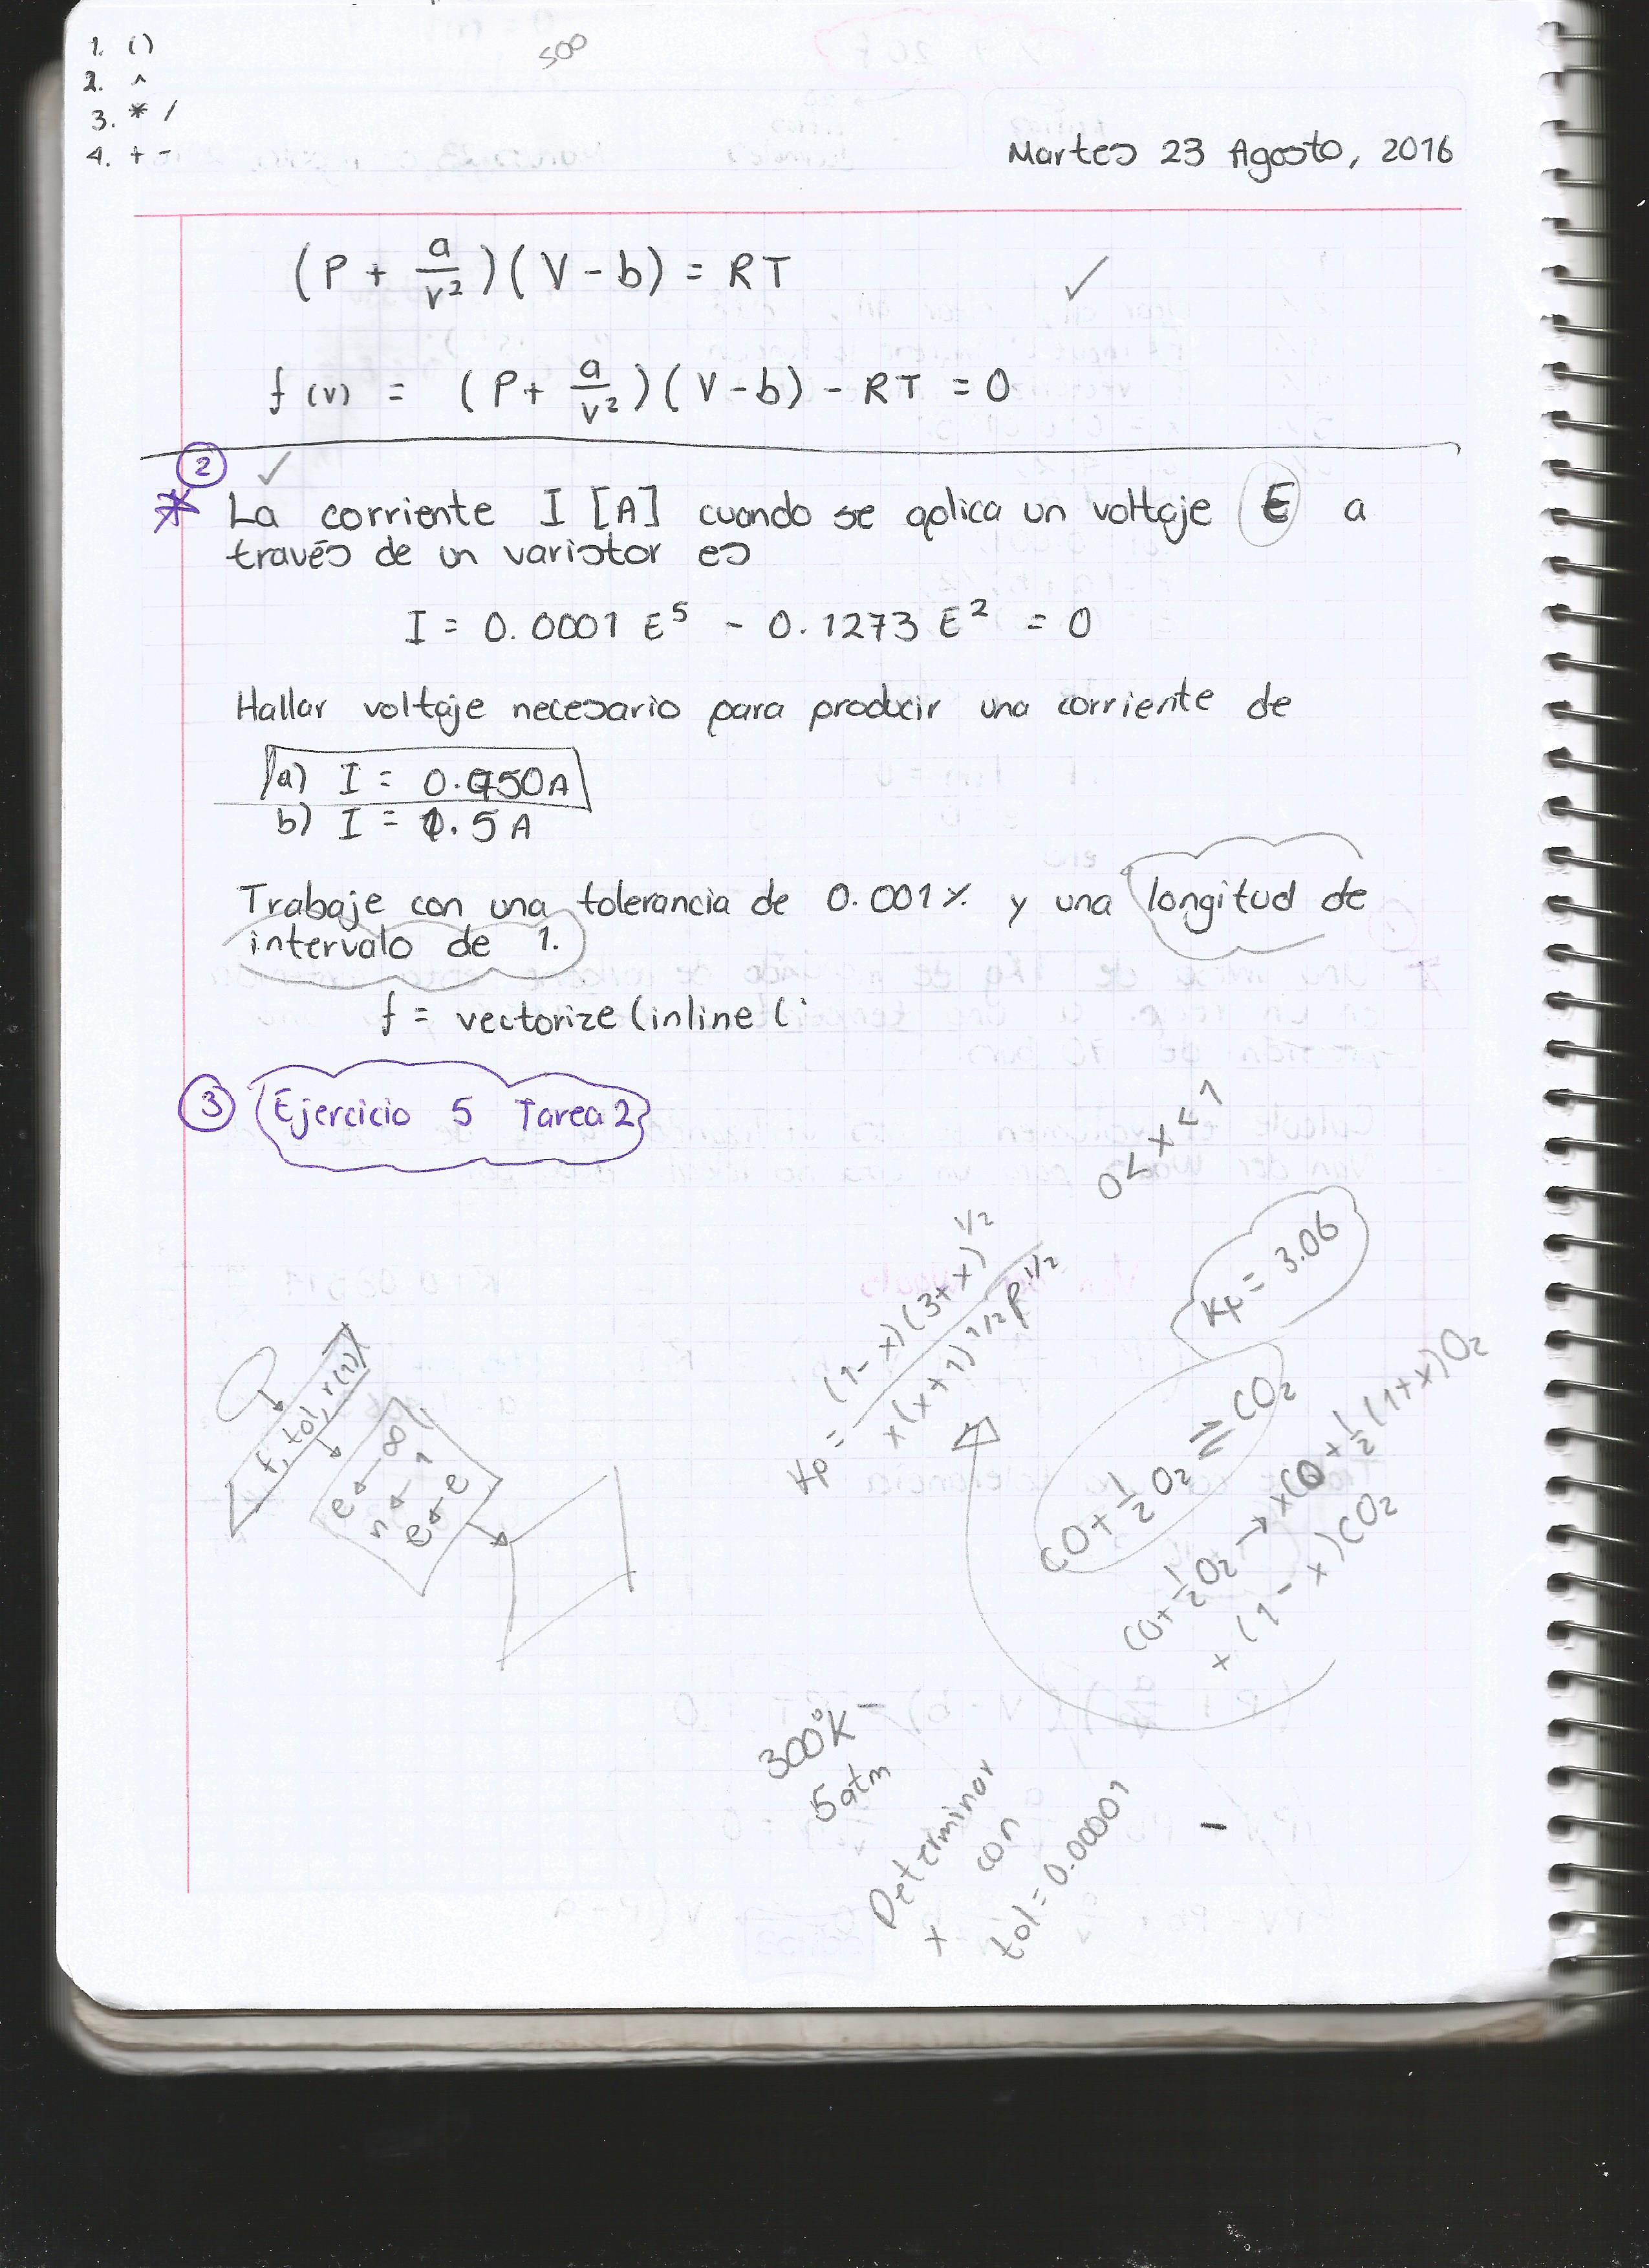 1. ()
2. ^
3. * /
4. + -
500
Martes 23 Agosto, 2016
(P + a/v²)(V - b) = RT ✓
f(v) = (P + a/v²)(V - b) - RT = 0
② ✓
* La corriente I [A] cuando se aplica un voltaje E a
través de un varistor es
I = 0.0001 E⁵ - 0.1273 E² = 0
Hallar voltaje necesario para producir una corriente de
a) I = 0.050A
b) I = 1.5 A
Trabaje con una tolerancia de 0.001% y una longitud de
intervalo de 1.
f = vectorize(inline('
③ Ejercicio 5 Tarea 2
0<x<1
Kp = (1-x)(3+x)^1/2 / x(x+1)^1/2 P^1/2
Kp = 3.06
CO + 1/2 O₂ ⇌ CO₂
CO + 1/2 O₂ → xCO + 1/2 (1+x)O₂
+ (1-x)CO₂
f, tol, r(1)
e ← ∞
n ← 1
e ← e
300°K
5atm
Determinar
x con
tol = 0.00001